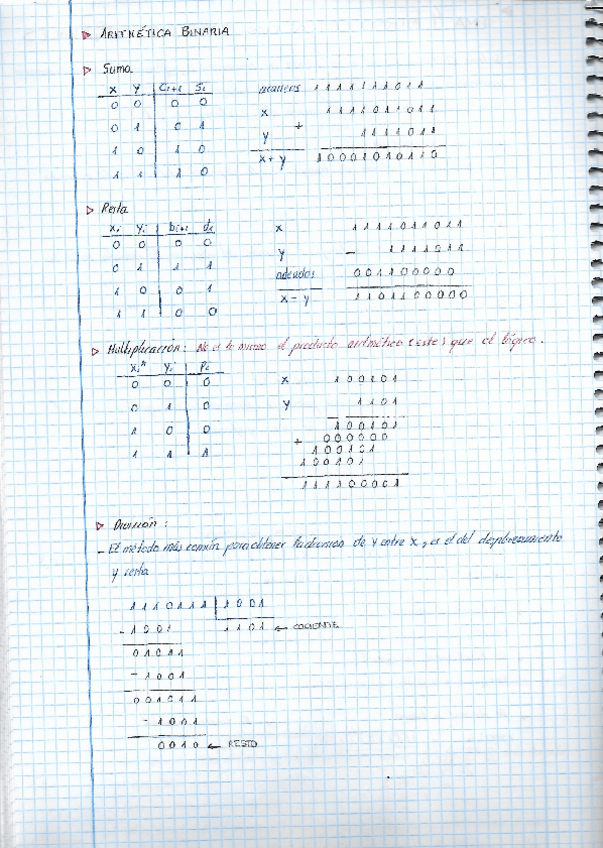 ▷ ARITMÉTICA BINARIA
▷ Suma
x y Ci+1 Si
0 0 0 0
0 1 0 1
1 0 1 0
1 1 1 0
acarreos 1111111011
x 1111011011
y + 1111011
x+y 10001010110
▷ Resta
xi yi bi+1 di
0 0 0 0
0 1 1 1
1 0 0 1
1 1 0 0
x 1111011011
y - 1111011
adeudos 001100000
x-y 1101100000
▷ Multiplicación: No es lo mismo el producto aritmético (este) que el lógico.
xi* yi Pi
0 0 0
0 1 0
1 0 0
1 1 1
x 100101
y 1101
100101
+ 000000
100101
100101
111100001
▷ División:
- El método más común para obtener la división de y entre x, es el del desplazamiento
y resta
1110111 1001
-1001 1101 ← COCIENTE
01011
-1001
001011
-1001
0010 ← RESTO